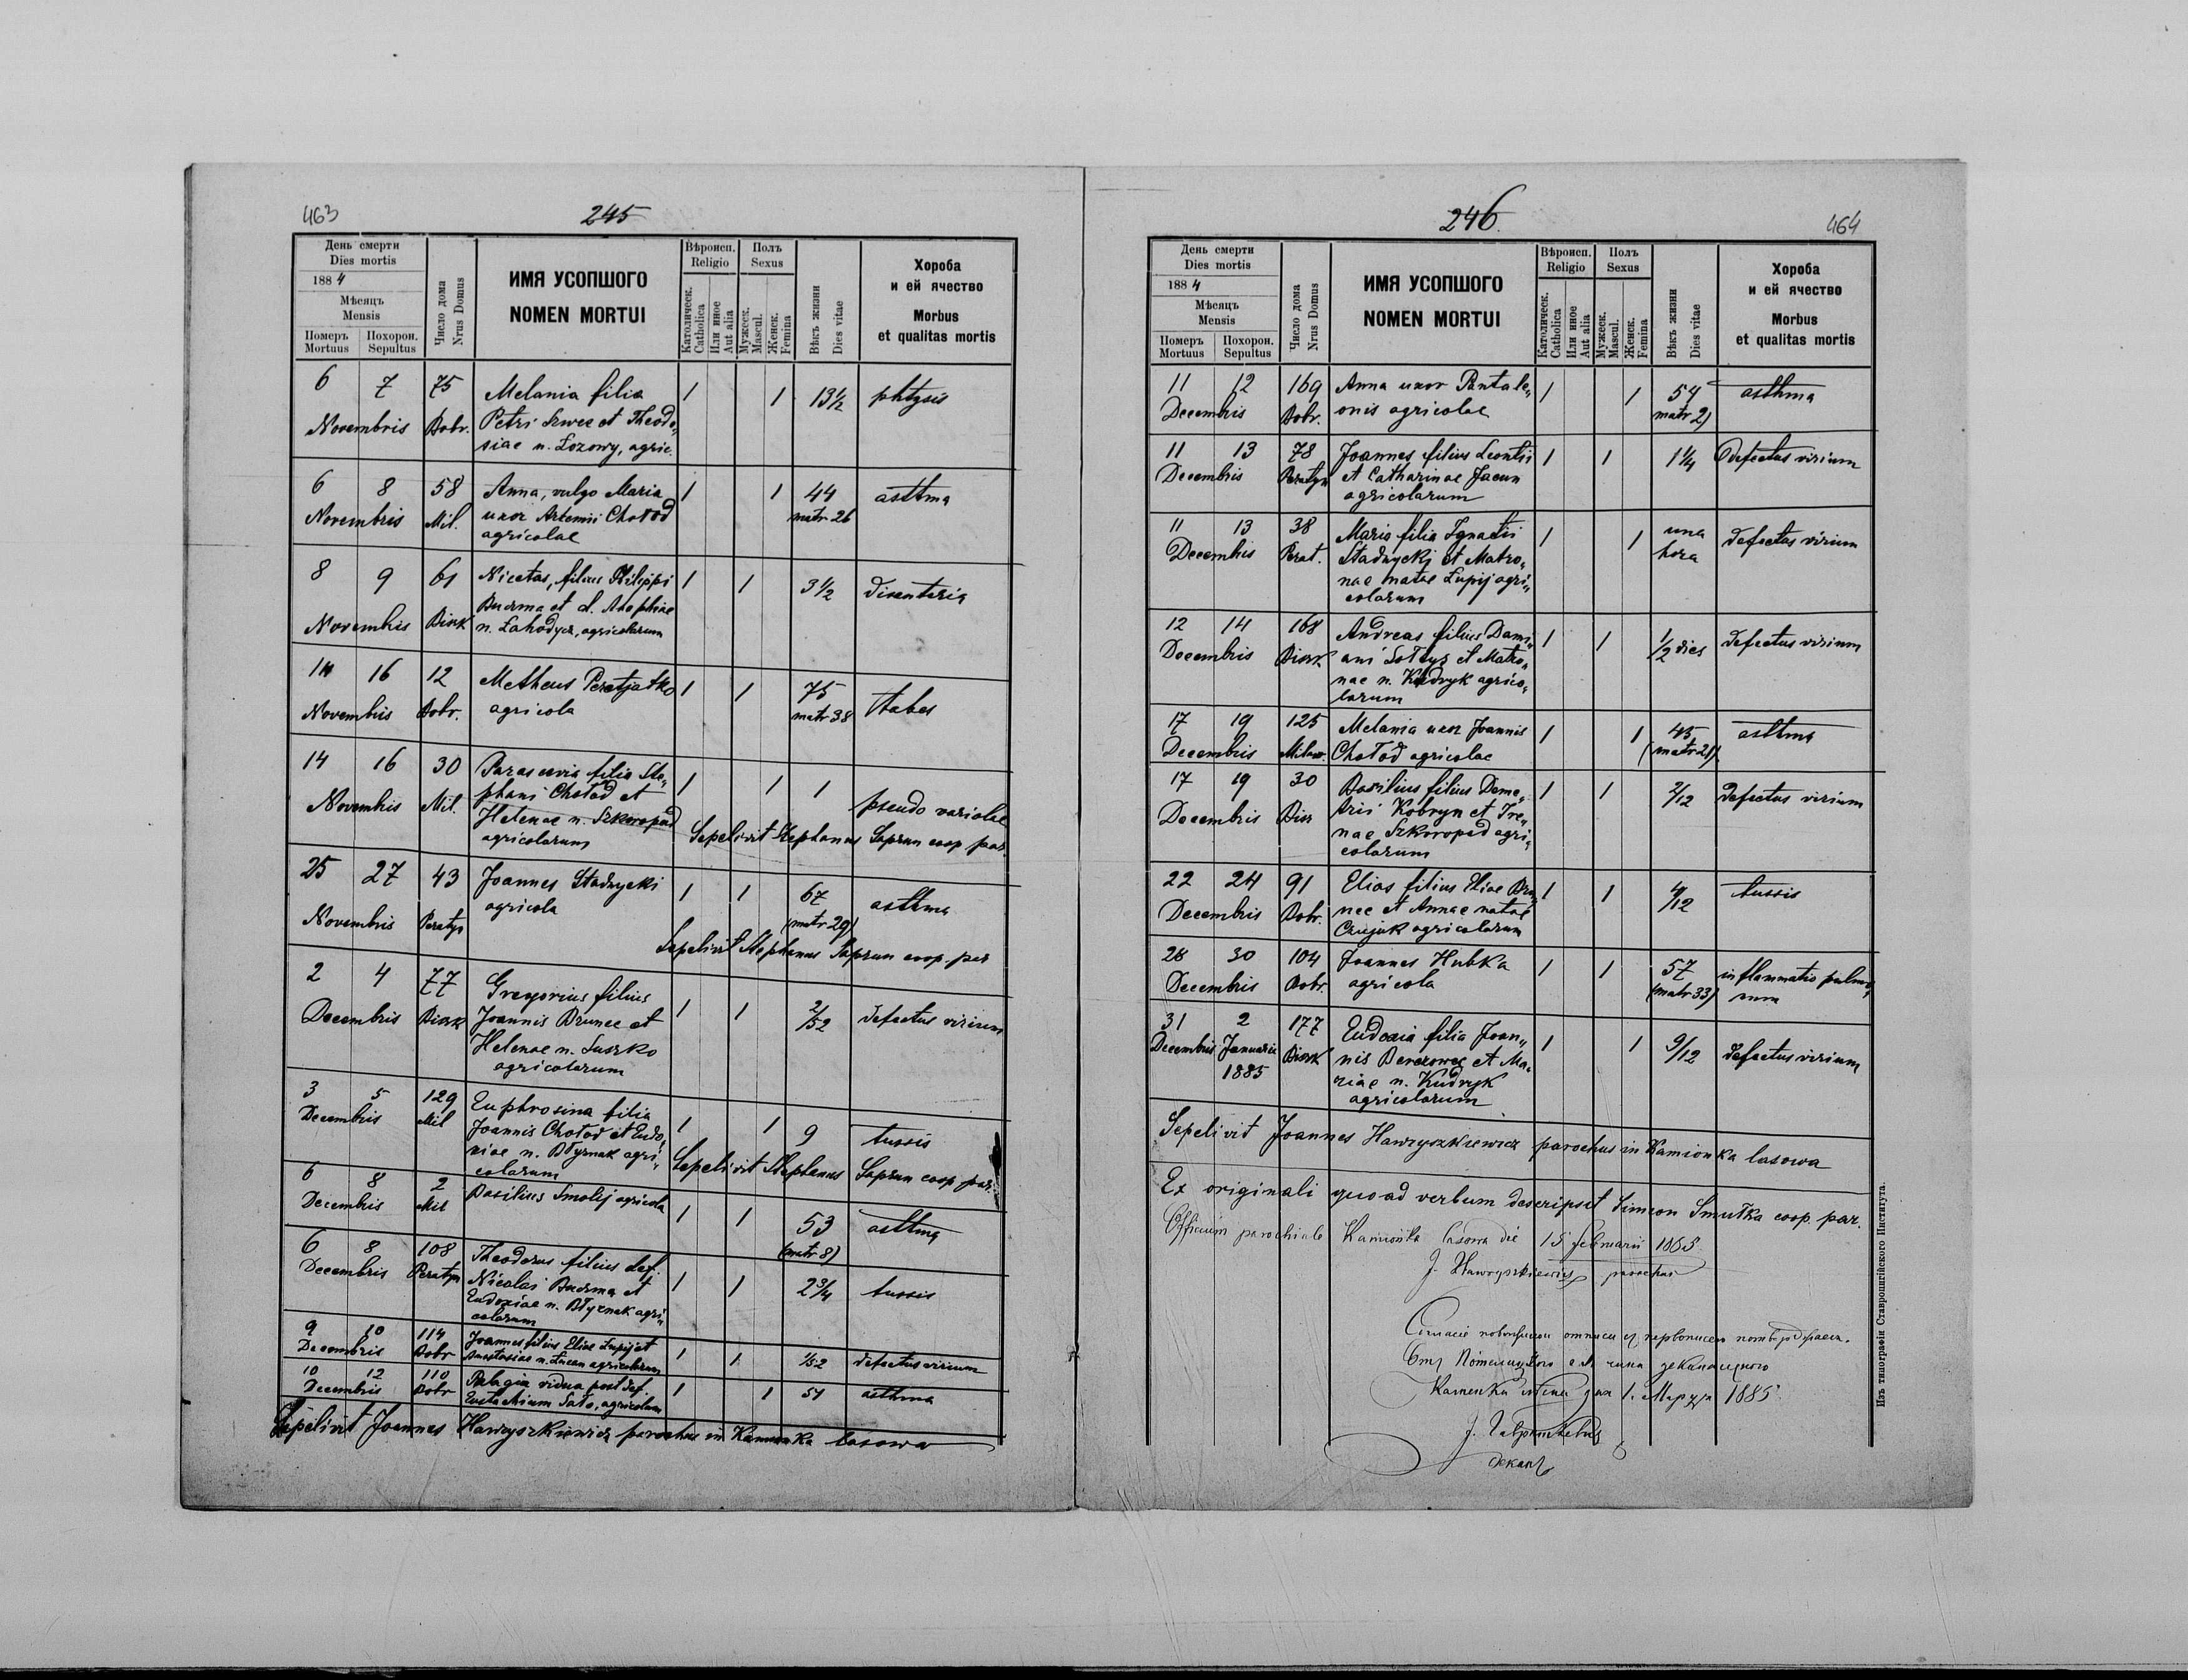 463
245
День смерти
Dies mortis
1884
Мѣсяцъ
Mensis
Померъ Похорон.
Mortuus Sepultus
Число дома
Nrus Domus
ИМЯ УСОПШОГО
NOMEN MORTUI
Вѣроисп.
Religio
Католическ.
Catholica
Или иное
Aut alia
Полъ
Sexus
Мужеск.
Mascul.
Женск.
Femina
Вѣкъ жизни
Dies vitae
Хороба
и ей ячество
Morbus
et qualitas mortis
6 7 75 Melania filia 1 1 13 1/2 phtysis
Novembris Dobr. Petri Szwec et Theodo„
siae n. Łozowy, agric.
6 8 58 Anna, vulgo Maria 1 1 44 asthma
Novembris Mil. uxor Artemii Chołod matr 26
agricolae
8 9 61 Nicetas, filius Philippi 1 1 3 1/2 disenteria
Novembris Biszk et d.
n. Łahodycz, agricolarum
14 16 12 Matheus Peretjatko 1 1 75 tabes
Novembris Dobr. agricola matr 38
14 16 30 Parascevia filia Ste„ 1 1 1
Novembris Mil. phani Chołod et pseudo variolae
Helenae n. Szkoropad
agricolarum Sepelivit Stephanus Saprun coop. par.
25 27 43 Joannes Stadnycki 1 1 67 asthma
Novembris Peratyn agricola (matr 29)
Sepelivit Stephanus Saprun coop. par
2 4 77 Gregorius filius 1 1 2/52 defectus virium
Decembris Biszk Joannis Brunec et
Helenae n. Suszko
agricolarum
3 5 129 Euphrosina filia 1 1 9 tussis
Decembris Mil Joannis Chołod et Eudo„
xiae n. Błyznak agri„
colarum Sepelivit Stephanus Saprun coop par.
6 8 2 Basilius Smolij agricola 1 1 53 asthma
Decembris Mil (matr 8)
6 8 108 Theodorus filius def. 1 1 2 3/4 tussis
Decembris Peratyn Nicolai et
Eudoxiae n. Błyznak agri„
colarum
9 10 114 Joannes filius Eliae Łupij et 1 1 1/52 defectus virium
Decembris Dobr Anastasiae n. agricolarum
10 12 110 Pelagia vidua post def. 1 1 54 asthma
Decembris Dobr Eustachium agricolam
Sepelivit Joannes Hawryszkiewicz parochus in Kamionka lasowa
246.
464
День смерти
Dies mortis
1884
Мѣсяцъ
Mensis
Померъ Похорон.
Mortuus Sepultus
Число дома
Nrus Domus
ИМЯ УСОПШОГО
NOMEN MORTUI
Вѣроисп.
Religio
Католическ.
Catholica
Или иное
Aut alia
Полъ
Sexus
Мужеск.
Mascul.
Женск.
Femina
Вѣкъ жизни
Dies vitae
Хороба
и ей ячество
Morbus
et qualitas mortis
11 12 169 Anna uxor Pantale„ 1 1 54 asthma
Decembris Dobr. onis agricolae matr 2)
11 13 78 Joannes filius Leontii 1 1 1 1/4 Defectus virium
Decembris Peratyn et Catharinae Jacun
agricolarum
11 13 38 Maria filia Ignatii 1 1 una defectus virium
Decembris Perat. Stadnyckj et Matro„ hora
nae natae Łupij agri„
colarum
12 14 168 Andreas filius Dami„ 1 1 1/2 dies defectus virium
Decembris Biszk ani Sołtys et Matro„
nae n. Kudryk agrico„
larum
17 19 125 Melania uxor Joannis 1 1 45 asthma
Decembris Milow. Chołod agricolae (matr 21)
17 19 30 Basilius filius Deme„ 1 1 2/12 Defectus virium
Decembris Bisz trii Kobryn et Ire„
nae Szkoropad agri„
colarum
22 24 91 Elias filius Eliae Bru„ 1 1 4/12 tussis
Decembris Dobr. nec et Annae natae
Czujak agricolarum
28 30 104 Joannes Hubka 1 1 57 inflammatio pulmo„
Decembris Dobr. agricola (matr 33) num
31 2 177 Eudoxia filia Joan„ 1 1 9/12 Defectus virium
Decembris Januarii Biszk nis Berezowec et Ma„
1885 riae n. Kudryk
agricolarum
Sepelivit Joannes Hawryszkiewicz parochus in Kamionka lasowa
Ex originali quoad verbum descripsit Simeon Smutka coop. par.
Officium parochiale Kamionka lasowa die 15 februarii 1885
J. Hawryszkiewicz parochus
Согласіе отписи съ первописею потверждаеся.
Отъ
Каменка дня 1. Марця 1885
І. Гавришкевич
деканъ
Изъ типографіи Ставропигійского Института.